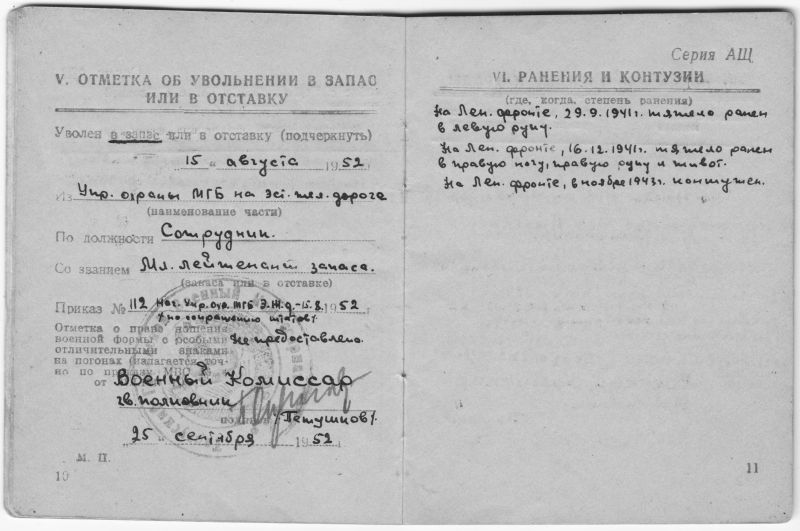 V. ОТМЕТКА ОБ УВОЛЬНЕНИИ В ЗАПАС
ИЛИ В ОТСТАВКУ
Уволен в запас или в отставку (подчеркнуть)
15 " августа 1952
Из Упр. охраны МГБ на Эст. жел. дорога
(наименование части)
По должности Сотрудник.
Со званием Мл. лейтенант запаса.
(запаса или в отставке)
Приказ № 112 Нач. Упр. охр. МГБ Э.Ж.д. - 15.8. 1952
/по сокращению штатов/
Отметка о праве ношения
военной формы с особыми
отличительными знаками
на погонах (излагается точ-
но по приказу МВО
от
Не предоставлено.
Военный Комиссар
гв. полковник
/Петушков/.
25 " сентября 1952 г
М. П.
10
Серия АЩ
VI. РАНЕНИЯ И КОНТУЗИИ
(где, когда, степень ранения)
На Лен. фронте, 29.9.1941г. тяжело ранен
в левую руку.
На Лен. фронте, 16.12.1941г. тяжело ранен
в правую ногу, правую руку и живот.
На Лен. фронте, в ноябре 1943г. контужен.
11